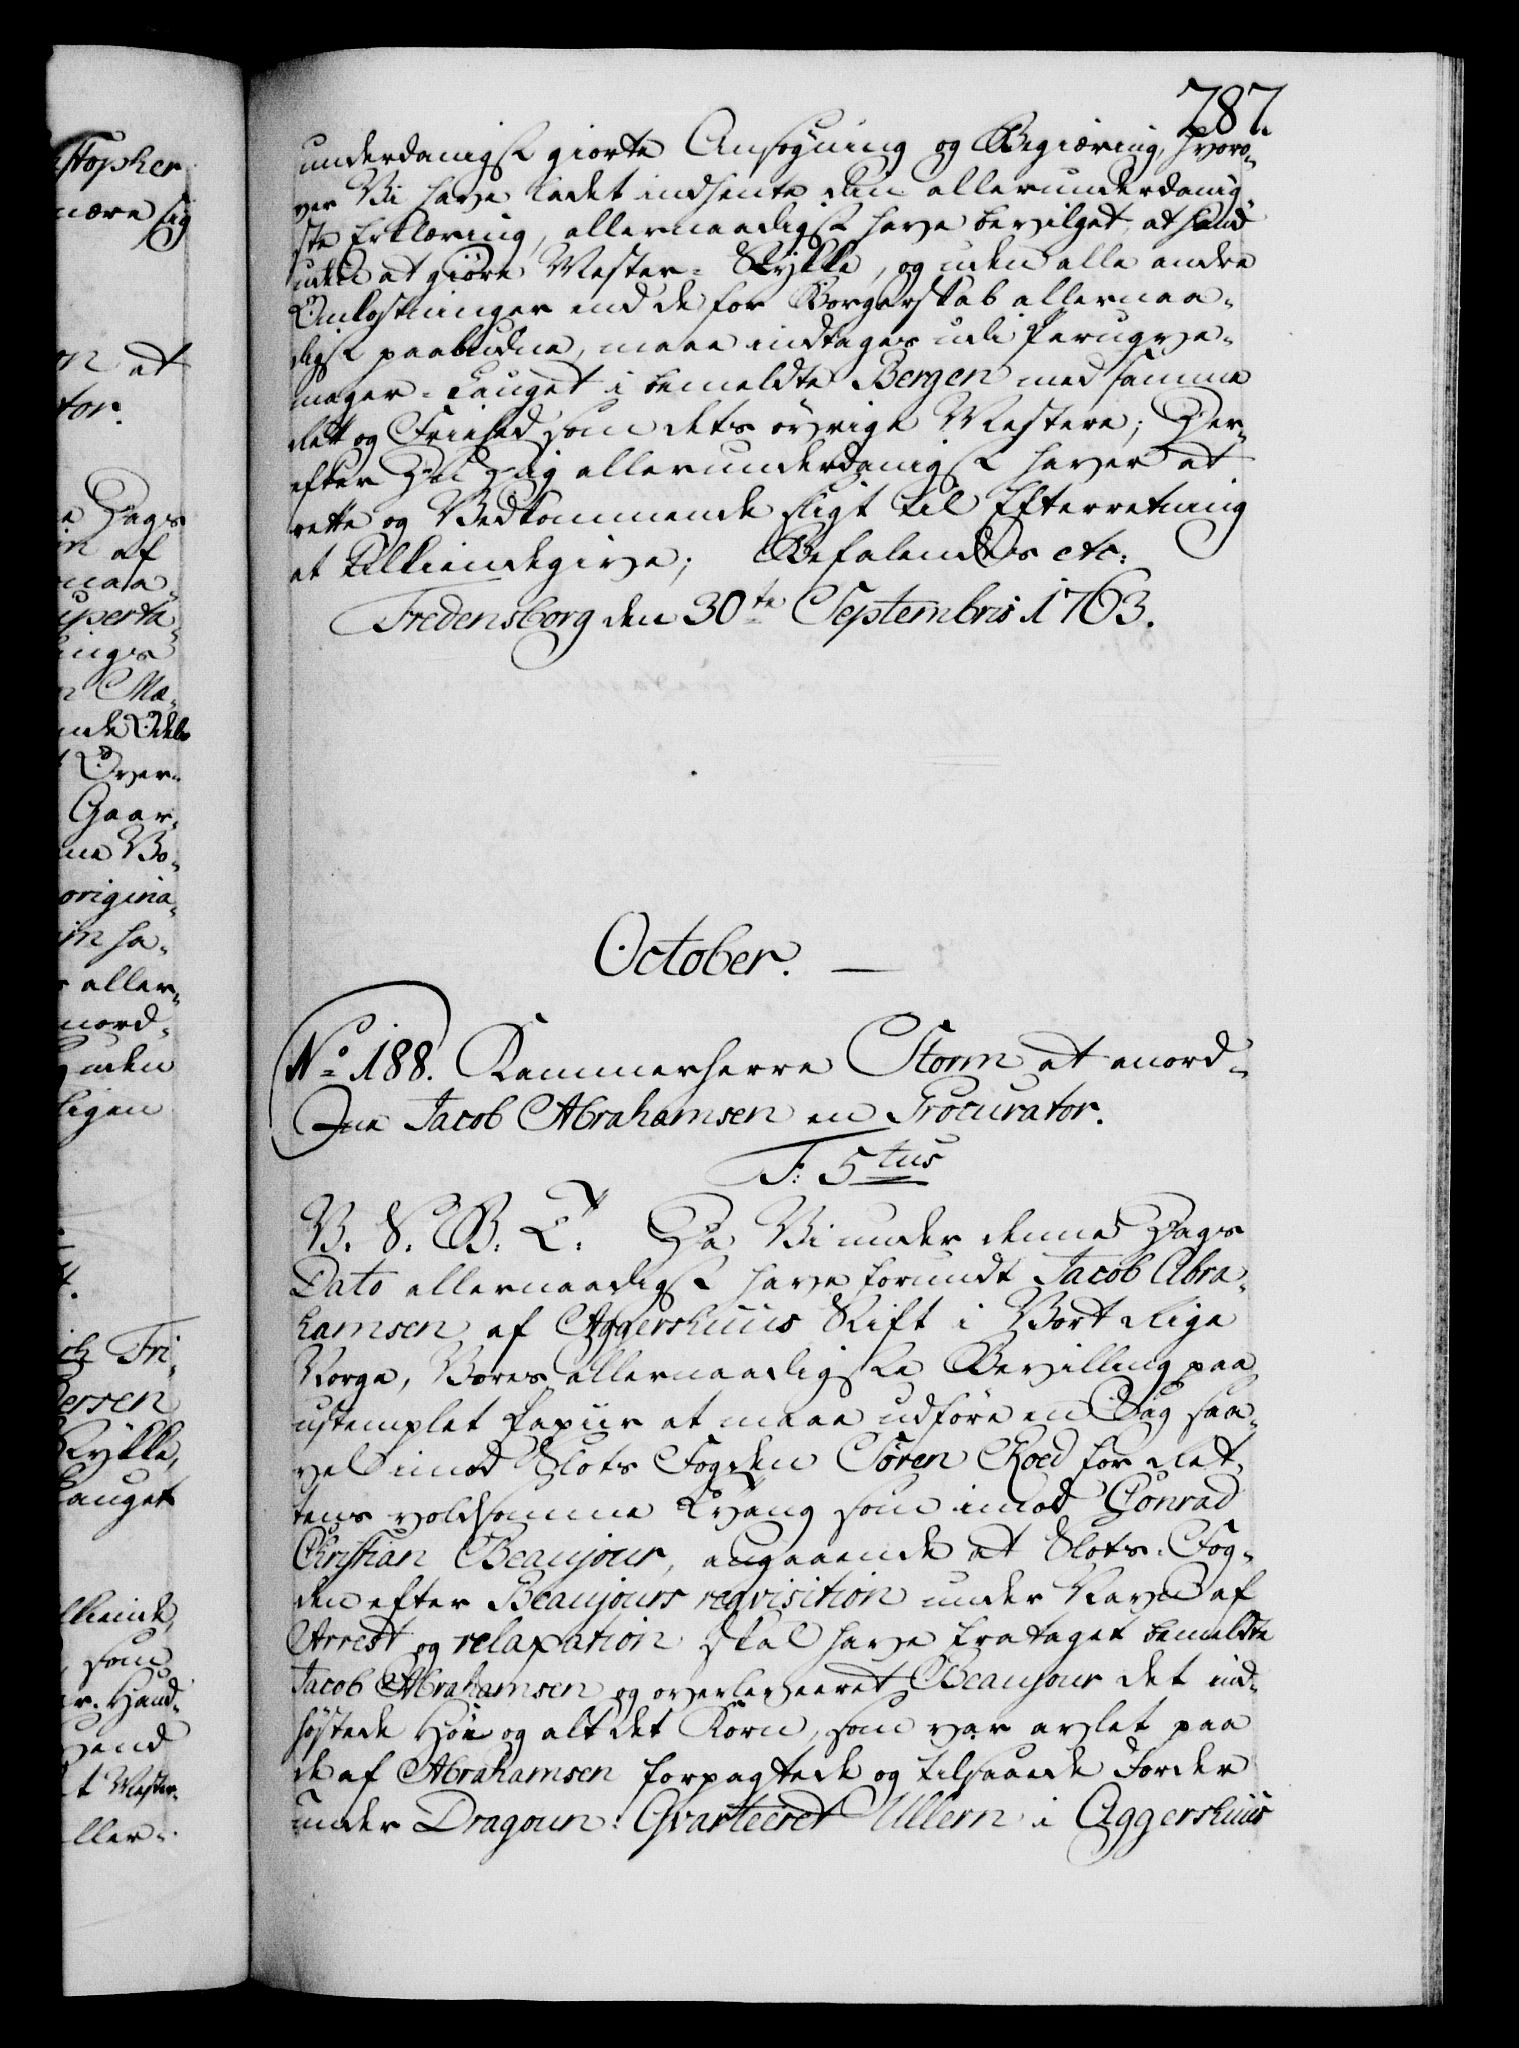 787.
underdanigst giorte Ansøgning og Begiæring, hvoro-
ver Vi have ladet indhente din allerunderdanig-
ste Erklæring, allernaadigst have bevilget, at hand
uden at giöre Mester-Stykke, og uden alle andre
Omkostninger end de for Borgerskab allernaa-
digst paabudne, maae indtages udi Peruqve-
mager-Lauget i bemeldte Bergen med samme
Ret og Friehed som dets övrige Mestere; Der-
efter Du Dig allerunderdanigst haver at
rette og Vedkommende sligt til Efterretning
at tilkiendegive; Befalendes etc:
Fredensborg den 30te Septembris 1763.
October.
No 188. Kammerherre Storm at anord-
ne Jacob Abrahamsen en Procurator.
F: 5tus
V. S. G. B. T. Da Vi under denne Dags
Dato allernaadigst have forundt Jacob Abra-
hamsen af Aggershuus Stift i Vort Rige
Norge, Vores allernaadigste Bevilling paa
ustemplet Papiir at maae udföre en Sag saa-
vel imod Slots Fogden Sören Roed for Ret-
tens voldsomme Tvang som imod Conrad
Christian Beaujour, angaaende at Slots-Fog-
den efter Beaujours reqvisition under Navn af
Arrest og relaxation skal have frataget bemeldte
Jacob Abrahamsen og overleveeret Beaujour det ind-
höstede Höe og alt det Korn, som var avlet paa
de af Abrahamsen forpagtede og tilsaaede Jorder
under Dragoun-Qvarteeret Ullern i Aggershuus